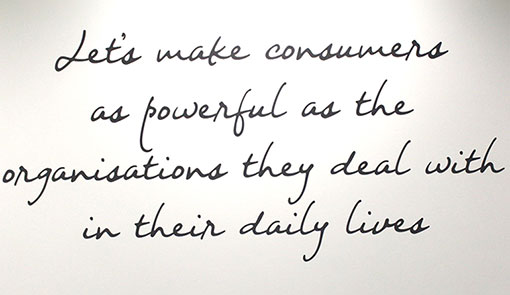 Let's make consumers
as powerful as the
organisations they deal with
in their daily lives